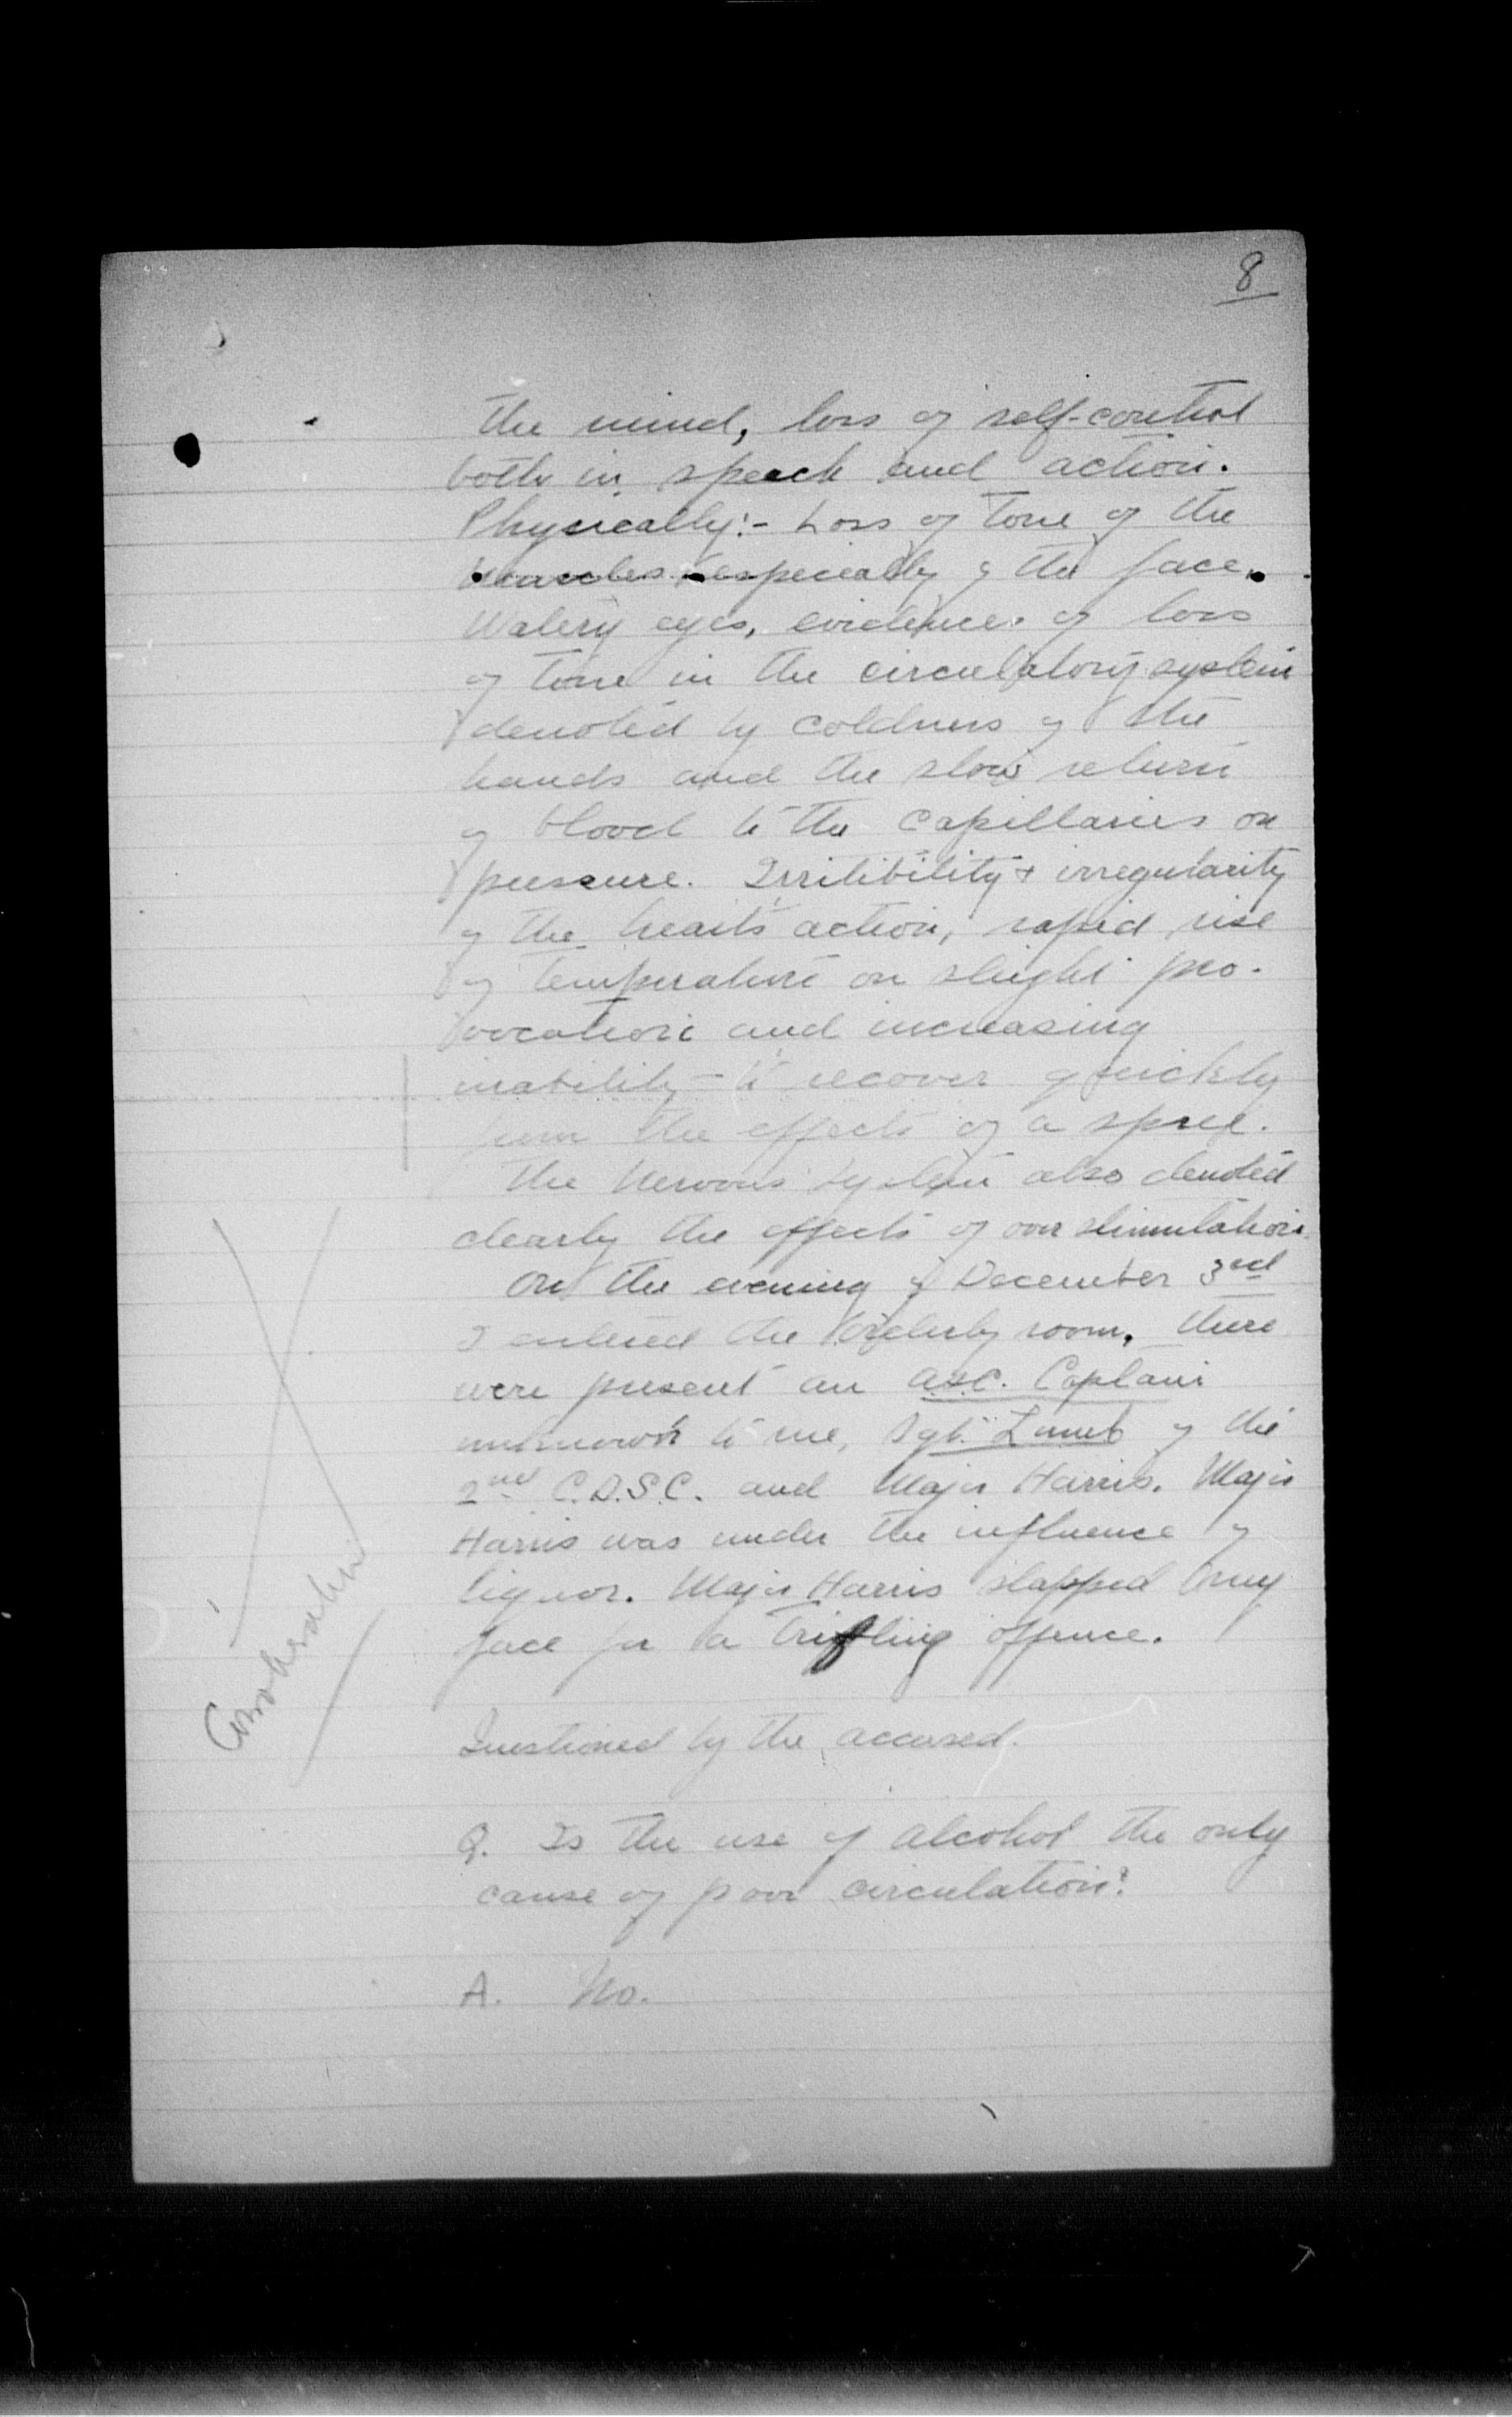 8
the mind, loss of self-control
both in speech and action.
Physically:- Loss of tone of the
muscles especially of the face.
Watery eyes, evidence of loss
of tone in the circulatory system
denoted by coldness of the
hands and the slow return
of blood to the capillaries on
pressure. Irritibility & irregularity
of the heart's action, rapid rise
of temperature on slight pro-
vocation and increasing
inability to recover quickly
from the effects of a spree.
The nervous system also denoted
clearly the effects of over stimulation.
On the evening of December 3rd
I entered the orderly room, there
were present an A.S.C. Captain
unknown to me, Sgt. Lumb of the
2nd C.D.S.C. and Major Harris. Major
Harris was under the influence of
liquor. Major Harris slapped my
face for a trifling offence.
Corroboration
Questioned by the accused.
Q. Is the use of alcohol the only
cause of poor circulation?
A. No.